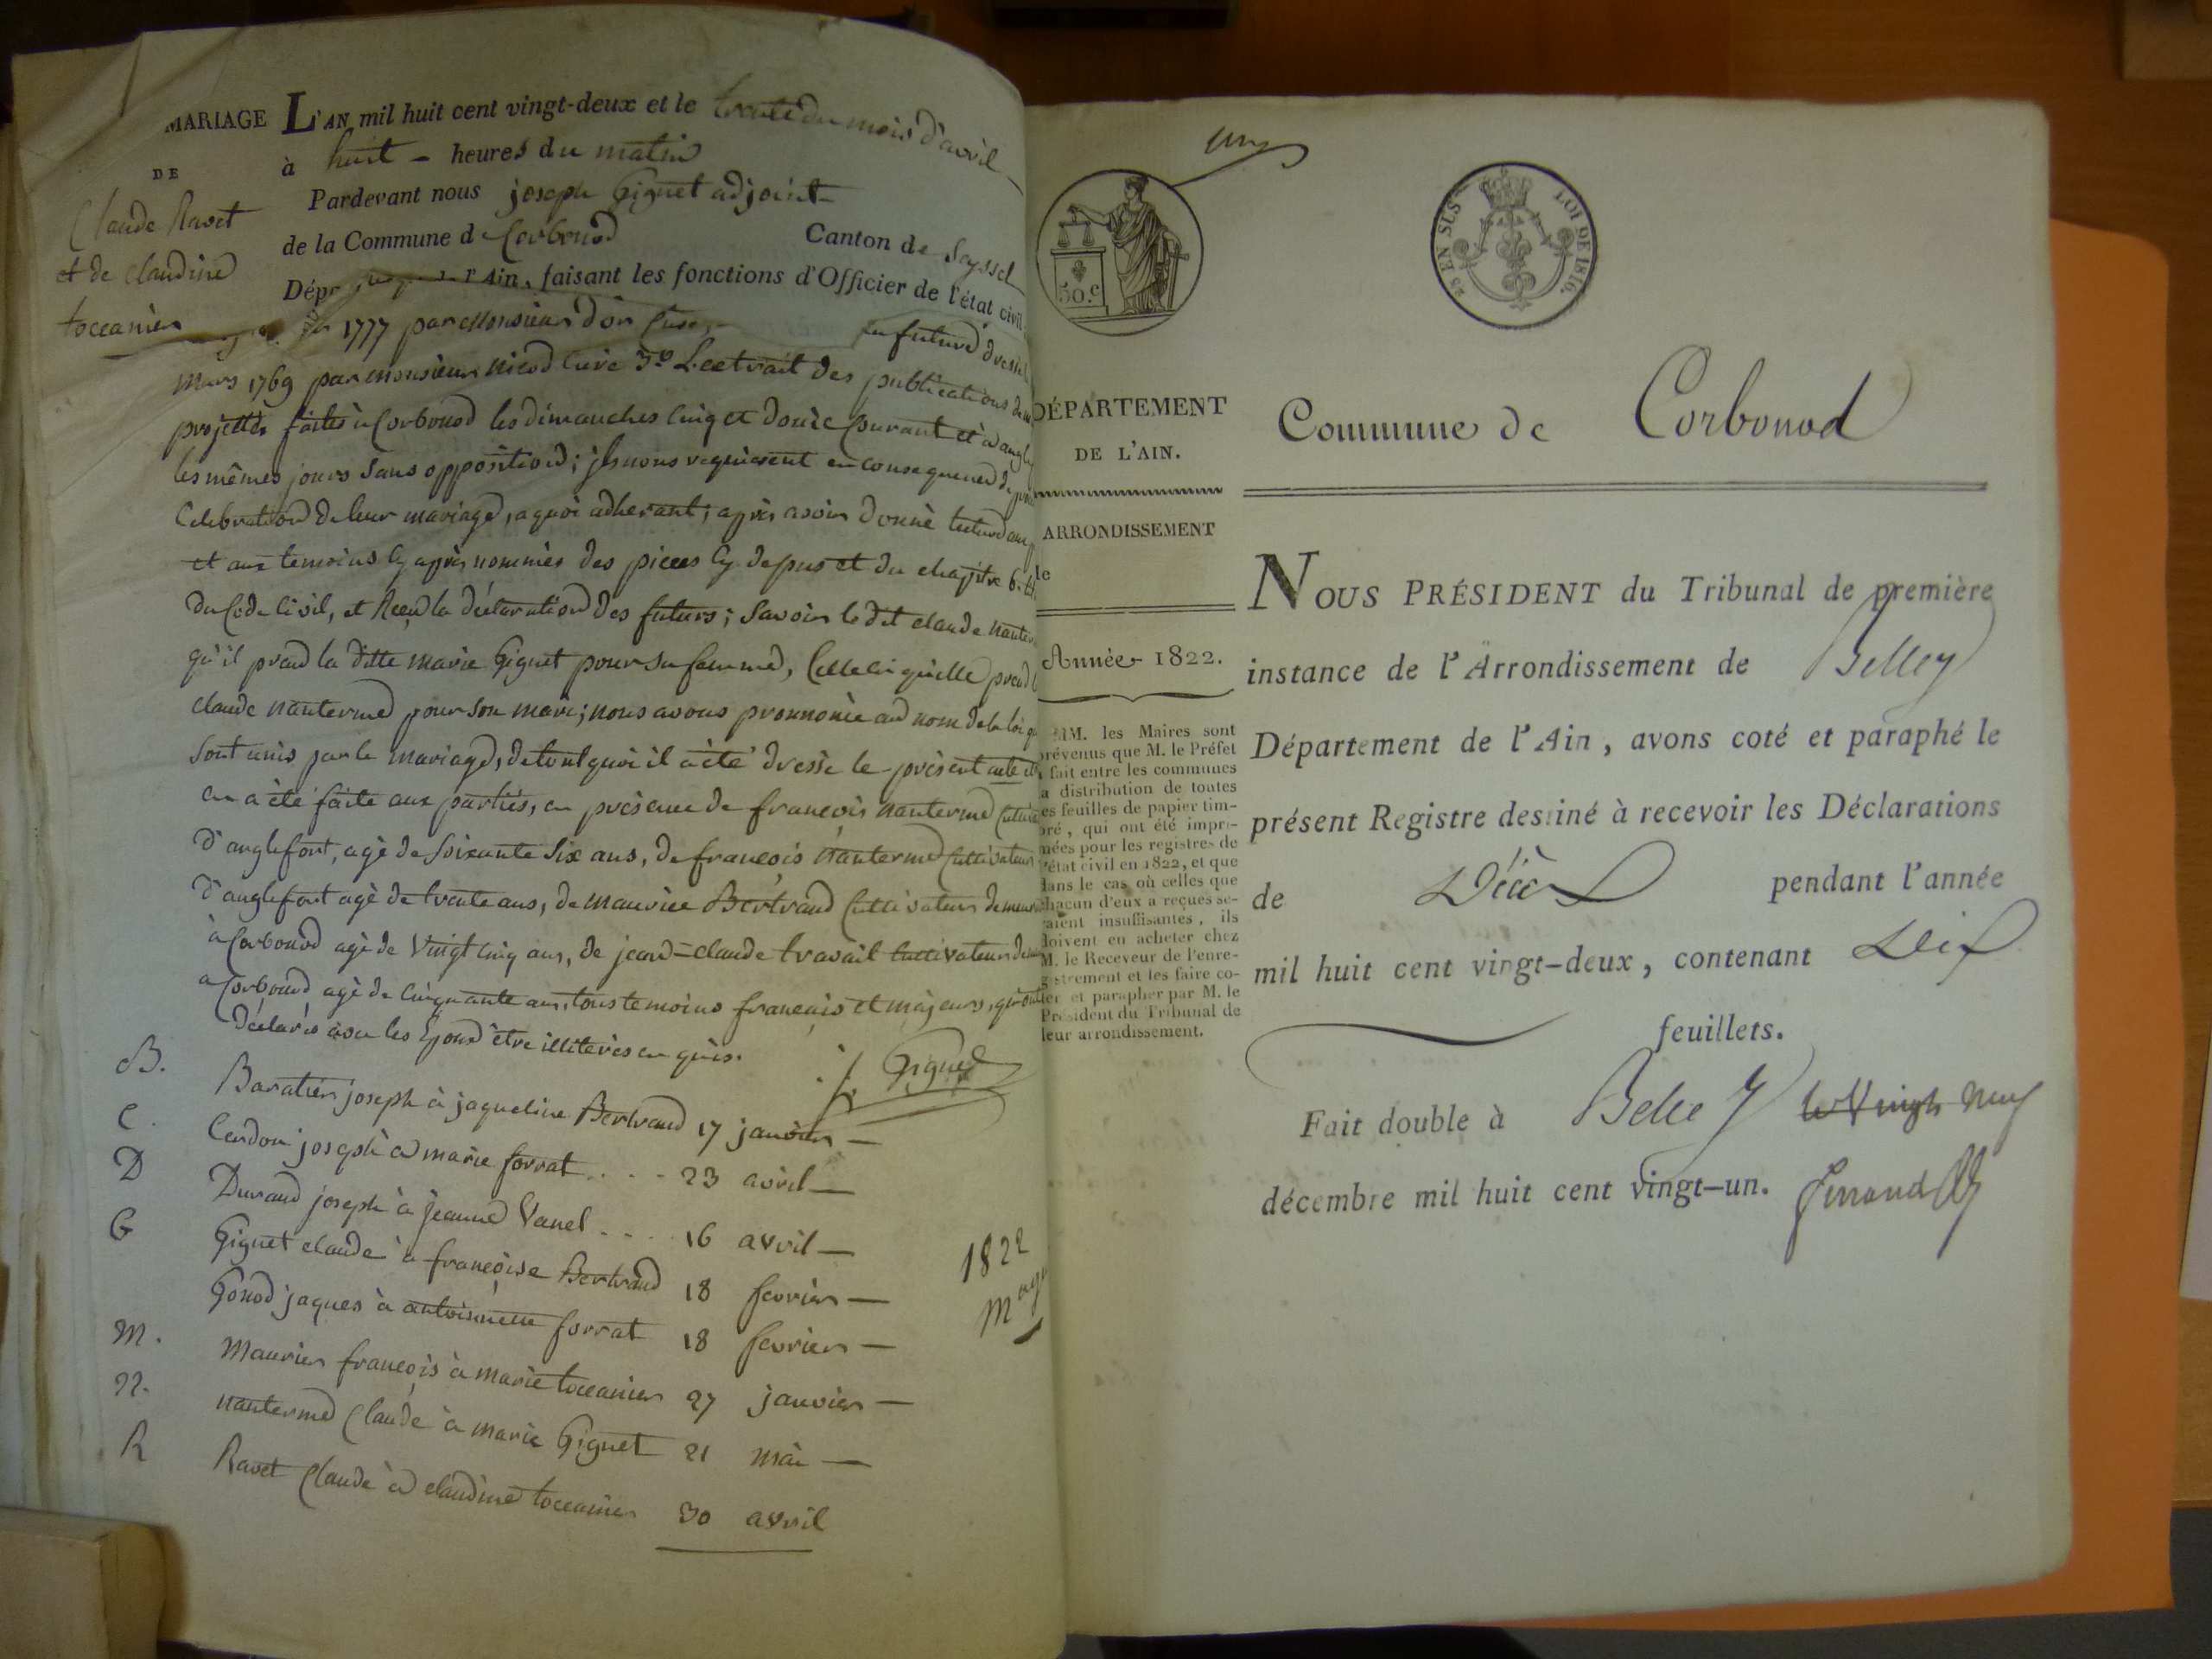 MARIAGE
DE
Claude Ravet
et de claudine
toccanier
L'AN mil huit cent vingt-deux et le trente du mois d'avril
à huit - heures du matin
Pardevant nous joseph Gignet adjoint
de la Commune de Corbonod Canton de Seyssel
l'Ain, faisant les fonctions d'Officier de l'état civil
1777 par Monsieur d'or Curé future dressé
mars 1769 par monsieur nicod Curé 3º L'extrait des publications
projettés faites à Corbonod les dimanches cinq et douze Courant et à
les mêmes jours sans opposition; ils nous requierent en consequence de
Celebration de leur mariage, a quoi adherant; après avoir donné lecture aux
et aux temoins cy après nommés des pieces cy depus et du chapitre 6.
du Code Civil, et Reçu la déclaration des futurs; savoir le dit claude
qu'il prend la ditte marie Gignet pour sa femme, Celle ci qu'elle prend
claude nanterme pour son mari; nous avons prononcé au nom de la loi
sont unis par le mariage, de tout quoi il a été dressé le présent acte
en a été faite aux parties, en présence de françois nanterme
d'anglefort, agé de soixante six ans, de françois nanterme Cultivateur
d'anglefort agé de trente ans, de maurice Bertrand Cultivateur
à Corbonod agé de vingt cinq ans, de jean=claude travail Cultivateur
a Corbonod agé de cinquante ans, tous temoins français et majeurs,
déclarés avec les Epoux être illiterés en quis.
j. Gignet
B. Baratier joseph à jaqueline Bertrand 17 janvier —
C. Cendon joseph à marie forrat . . . . 23 avril —
D Durand joseph à jeanne Vanel . . . . 16 avril —
G Gignet claude à françoise Bertrand 18 fevrier —
Gonod jaques à antoinette forrat 18 fevrier —
M. Maurier françois à marie toccanier 27 janvier —
N. nanterme Claude à marie Gignet 21 mai —
R Ravet Claude à claudine toccanier 30 avril
1822
50.c
EN SUS
LOI DE 1816.
DÉPARTEMENT
DE L'AIN.
ARRONDISSEMENT
Année 1822.
MM. les Maires sont
prévenus que M. le Préfet
fait entre les communes
la distribution de toutes
les feuilles de papier tim-
bré, qui ont été impri-
mées pour les registres de
l'état civil en 1822, et que
dans le cas où celles que
chacun d'eux a reçues se-
raient insuffisantes, ils
doivent en acheter chez
M. le Receveur de l'enre-
gistrement et les faire co-
ter et parapher par M. le
Président du Tribunal de
leur arrondissement.
Commune de Corbonod
NOUS PRÉSIDENT du Tribunal de première
instance de l'Arrondissement de Belley
Département de l'Ain, avons coté et paraphé le
présent Registre destiné à recevoir les Déclarations
de Décès pendant l'année
mil huit cent vingt-deux, contenant Dix
feuillets.
Fait double à Belley le Vingt neuf
décembre mil huit cent vingt-un.